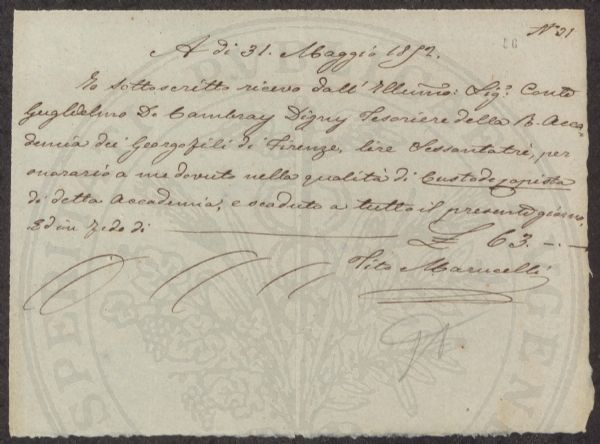 Nº 21
26
A di 31. Maggio 1852.
Io sottoscritto ricevo dall'Illmo: Sigr. Conte
Guglielmo De Cambray Digny Tesoriere della R. Acca-
demia dei Georgofili di Firenze, lire Sessantatre, per
onorario a me dovuto nella qualità di Custode copista
di detta Accademia, e scaduto a tutto il presente giorno,
Ed in fede di £ 63. -.-
Tito Marucelli